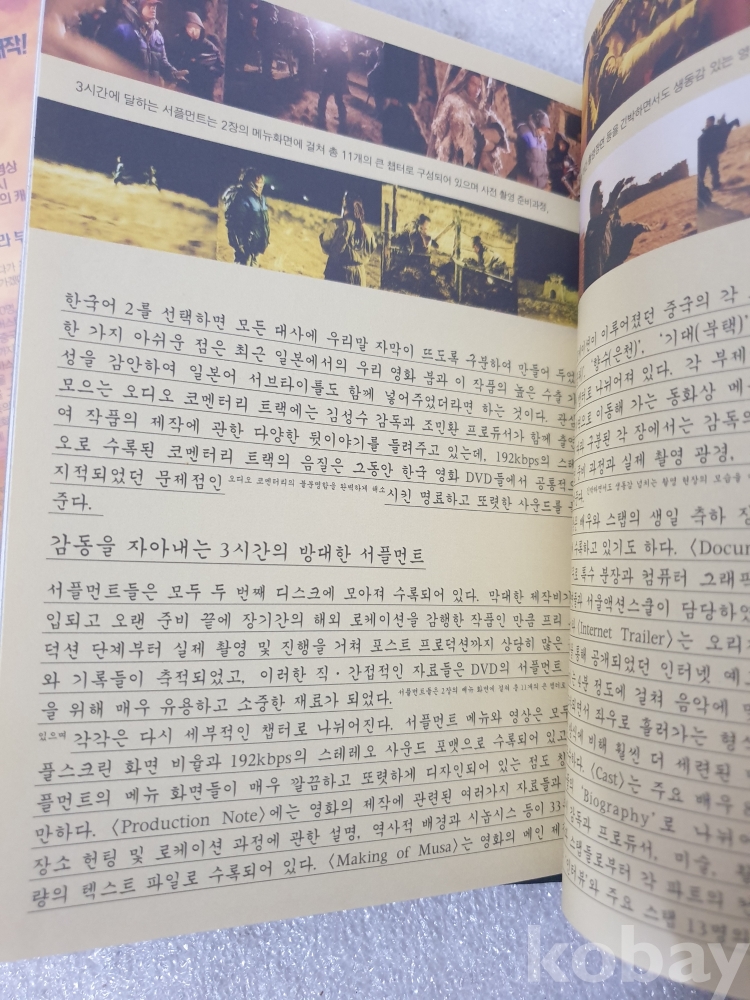 작!
영상
의 캐
라 부
3시간에 달하는 서플먼트는 2장의 메뉴화면에 걸쳐 총 11개의 큰 챕터로 구성되어 있으며 사전 촬영 준비과정,
한국어 2를 선택하면 모든 대사에 우리말 자막이 뜨도록 구분하여 만들어 두었
한 가지 아쉬운 점은 최근 일본에서의 우리 영화 붐과 이 작품의 높은 수출 가
성을 감안하여 일본어 서브타이틀도 함께 넣어주었더라면 하는 것이다. 관심
모으는 오디오 코멘터리 트랙에는 김성수 감독과 조민환 프로듀서가 함께 출연
여 작품의 제작에 관한 다양한 뒷이야기를 들려주고 있는데, 192kbps의 스테
오로 수록된 코멘터리 트랙의 음질은 그동안 한국 영화 DVD들에서 공통적으
지적되었던 문제점인 오디오 코멘터리의 불분명함을 완벽하게 해소시킨 명료하고 또렷한 사운드를
준다.
감동을 자아내는 3시간의 방대한 서플먼트
서플먼트들은 모두 두 번째 디스크에 모아져 수록되어 있다. 막대한 제작비가
입되고 오랜 준비 끝에 장기간의 해외 로케이션을 감행한 작품인 만큼 프리
덕션 단계부터 실제 촬영 및 진행을 거쳐 포스트 프로덕션까지 상당히 많은
와 기록들이 축적되었고, 이러한 직·간접적인 자료들은 DVD의 서플먼트
을 위해 매우 유용하고 소중한 재료가 되었다. 서플먼트들은 2장의 메뉴 화면에 걸쳐 총 11개의 큰 챕터로
있으며 각각은 다시 세부적인 챕터로 나뉘어진다. 서플먼트 메뉴와 영상은 모두
플스크린 화면 비율과 192kbps의 스테레오 사운드 포맷으로 수록되어 있고
플먼트의 메뉴 화면들이 매우 깔끔하고 또렷하게 디자인되어 있는 점도 칭
만하다. 〈Production Note〉에는 영화의 제작에 관련된 여러가지 자료들과
장소 헌팅 및 로케이션 과정에 관한 설명, 역사적 배경과 시놉시스 등이 33
량의 텍스트 파일로 수록되어 있다. 〈Making of Musa〉는 영화의 메인 제
촬영장면 등을 긴박하면서도 생동감 있는 영
이루어졌던 중국의 각
'기대(부택)'
나뉘어져 있다. 각 부제
으로 이동해 가는 동화상 메
구분된 각 장에서는 감독의
과정과 실제 촬영 광경,
생동감 넘치는 촬영 현장의 모습을
배우와 스탭의 생일 축하 장
수록하고 있기도 하다. 〈Docum
특수 분장과 컴퓨터 그래픽
서울액션스쿨이 담당하였
(Internet Trailer〉는 오리
통해 공개되었던 인터넷 예고
4분 정도에 걸쳐 음악에 맞
되면서 좌우로 흘러가는 형식
비해 훨씬 더 세련된
〈Cast〉는 주요 배우
'Biography'로 나뉘어
감독과 프로듀서, 미술,
스탭들로부터 각 파트의
인터뷰'와 주요 스탭 13명의
kobay